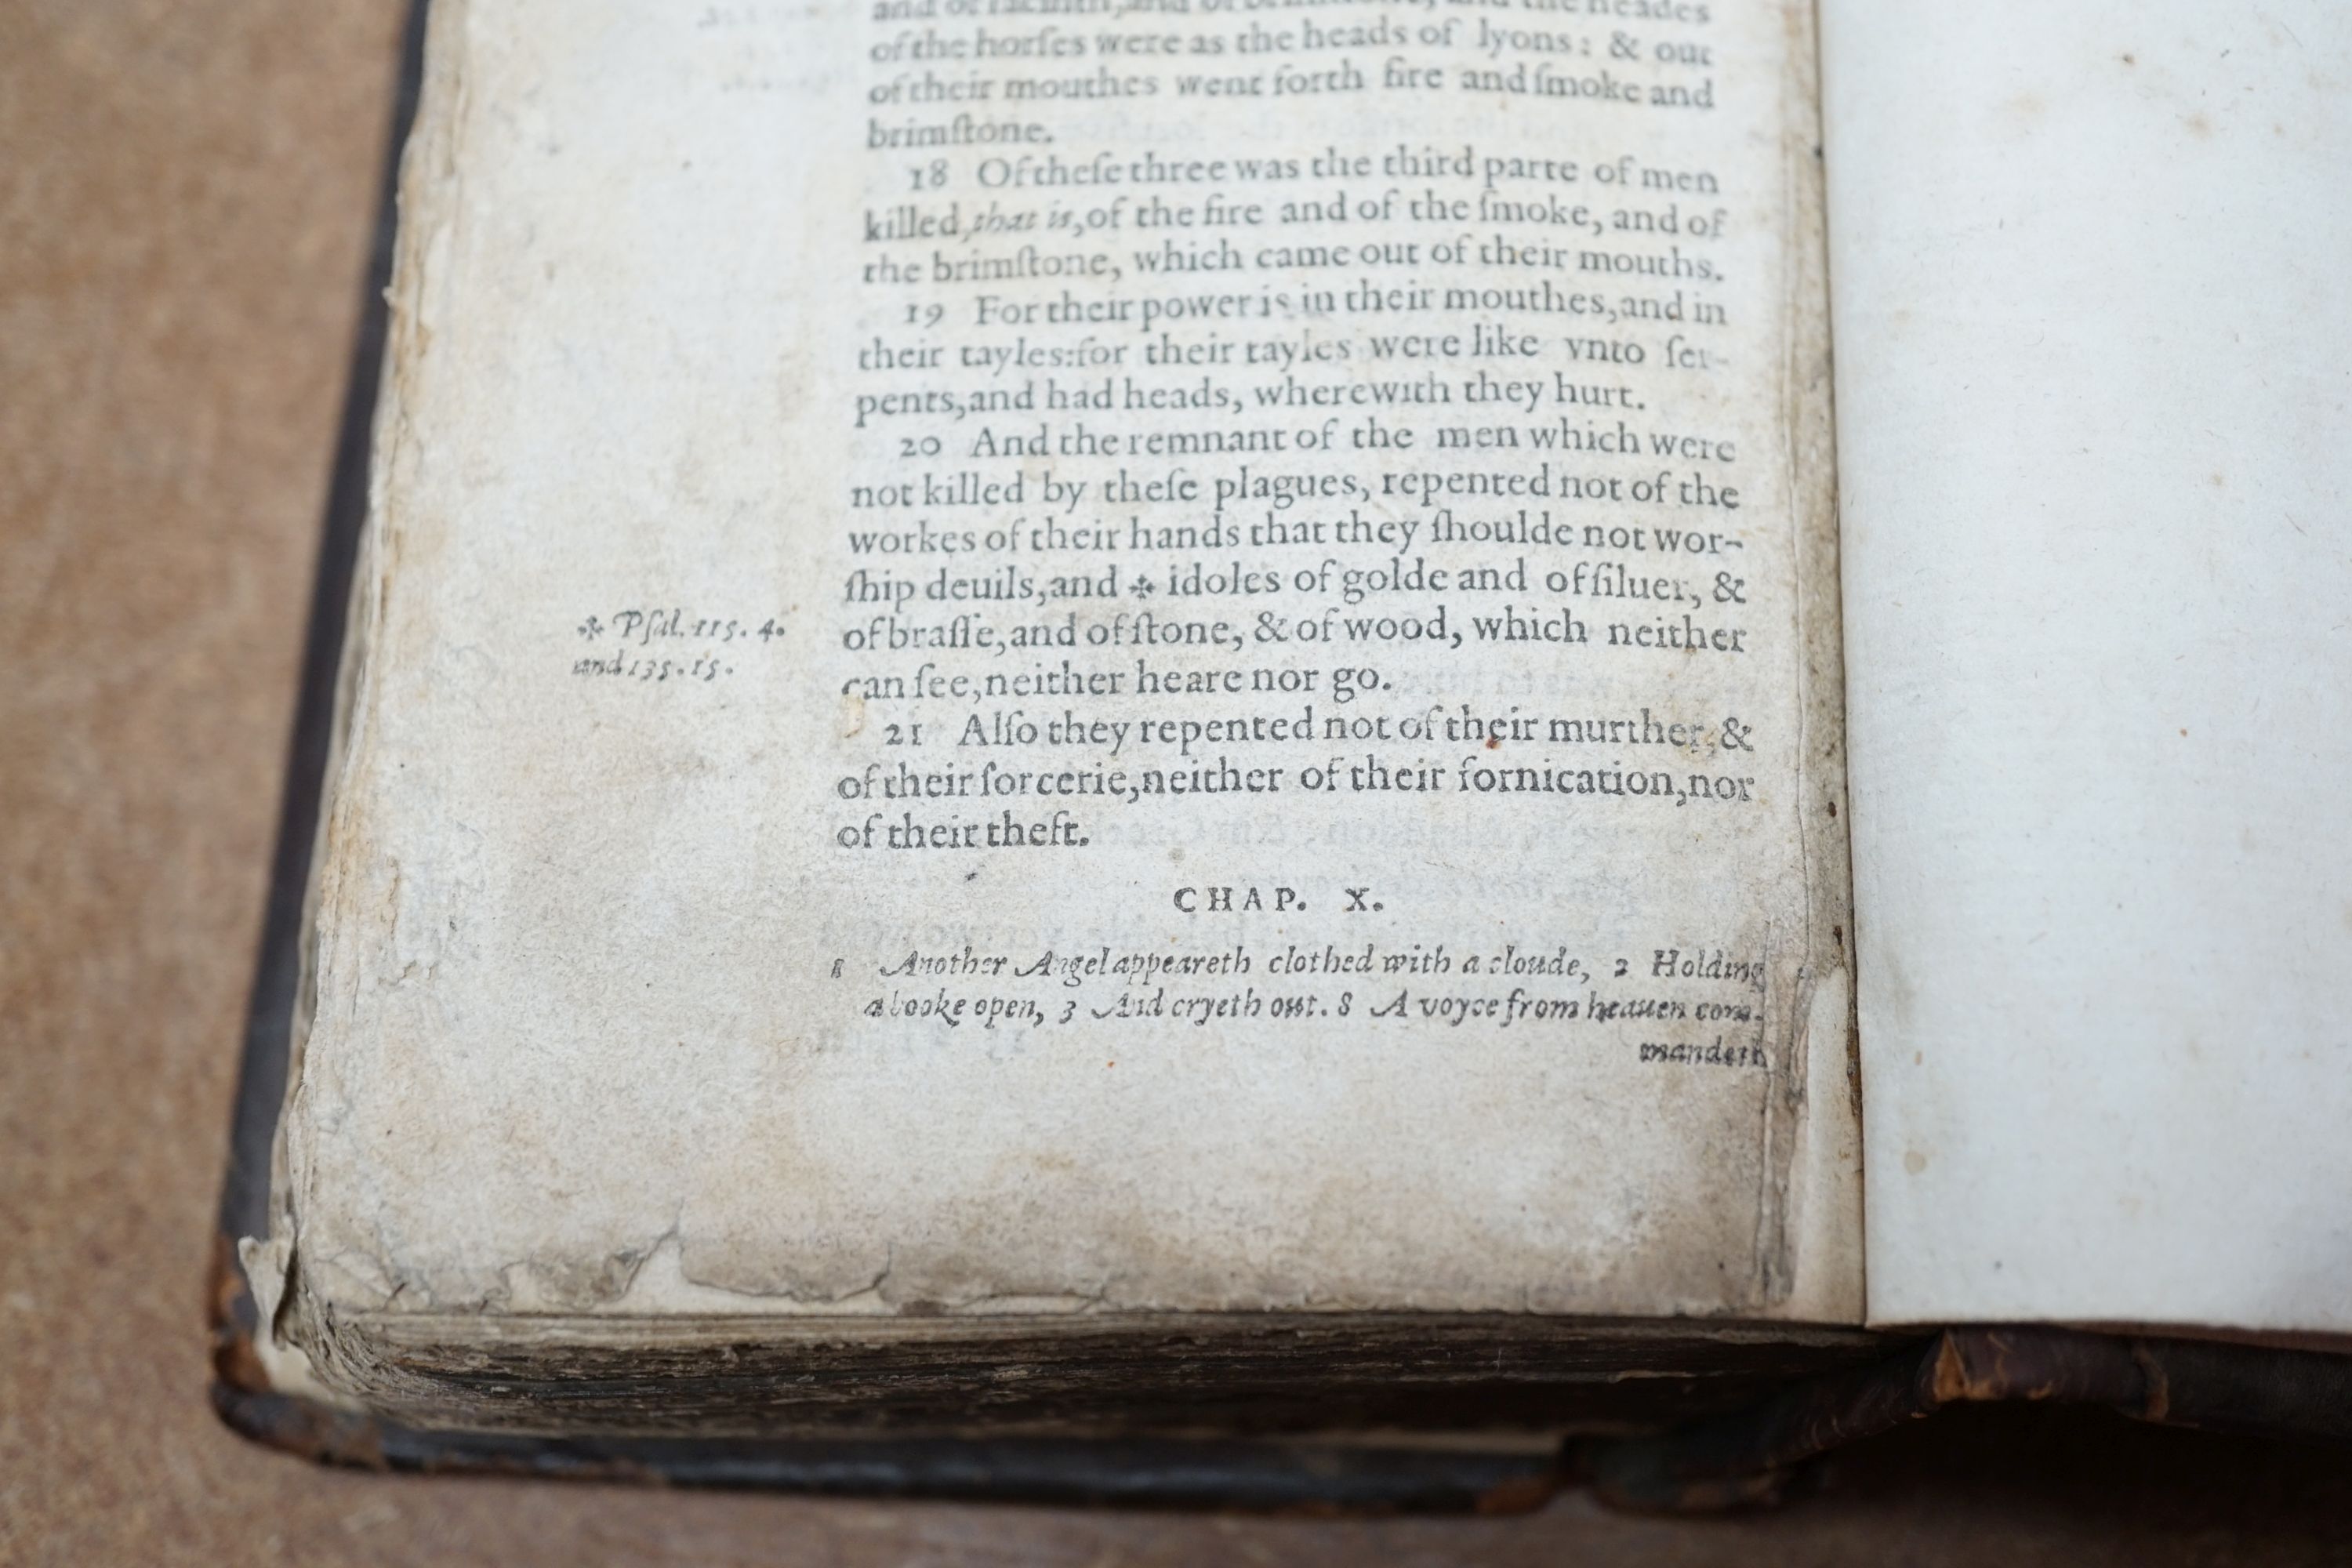 and of Iacinth, and of brimstone, and the heades
of the horſes were as the heads of lyons: & out
of their mouthes went forth fire and ſmoke and
brimſtone.
18 Of theſe three was the third parte of men
killed, that is, of the fire and of the ſmoke, and of
the brimſtone, which came out of their mouths.
19 For their power is in their mouthes, and in
their tayles: for their tayles were like vnto ſer-
pents, and had heads, wherewith they hurt.
20 And the remnant of the men which were
not killed by theſe plagues, repented not of the
workes of their hands that they ſhoulde not wor-
ſhip deuils, and ✣ idoles of golde and of ſiluer, &
✣ Pſal. 115. 4.
of braſſe, and of ſtone, & of wood, which neither
and 135. 15.
can ſee, neither heare nor go.
21 Alſo they repented not of their murther, &
of their ſorcerie, neither of their fornication, nor
of their theft.
CHAP. X.
1 Another Angel appeareth clothed with a cloude, 2 Holding
a booke open, 3 And cryeth out. 8 A voyce from heauen com-
mandeth